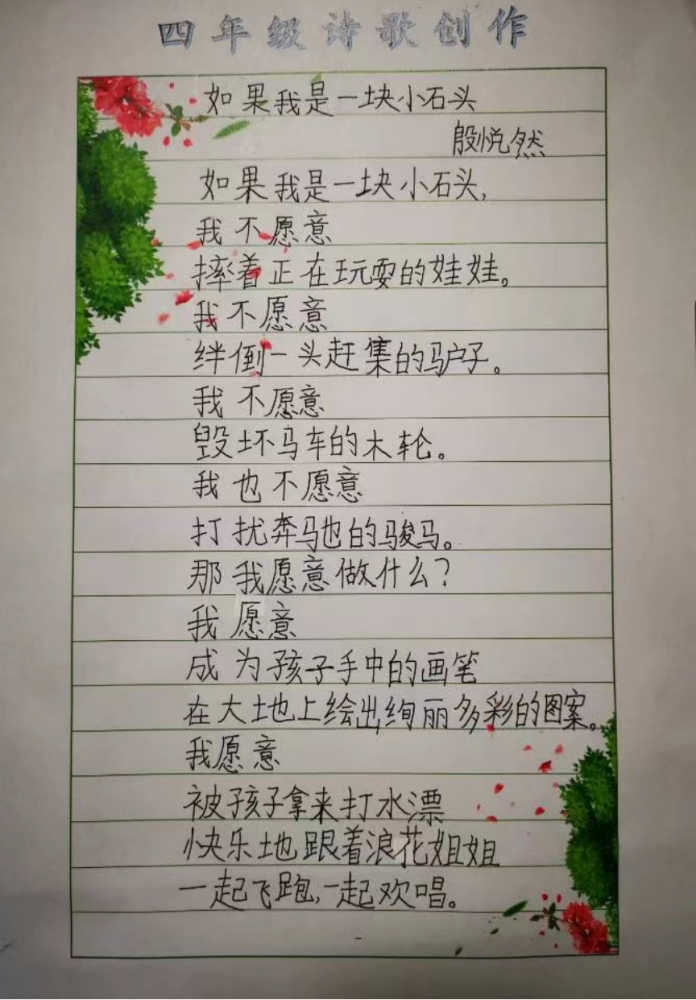 四年级诗歌创作
如果我是一块小石头
殷悦然
如果我是一块小石头,
我不愿意
摔着正在玩耍的娃娃。
我不愿意
绊倒一头赶集的驴子。
我不愿意
毁坏马车的木轮。
我也不愿意
打扰奔驰的骏马。
那我愿意做什么?
我愿意
成为孩子手中的画笔
在大地上绘出绚丽多彩的图案。
我愿意
被孩子拿来打水漂
快乐地跟着浪花姐姐
一起飞跑,一起欢唱。